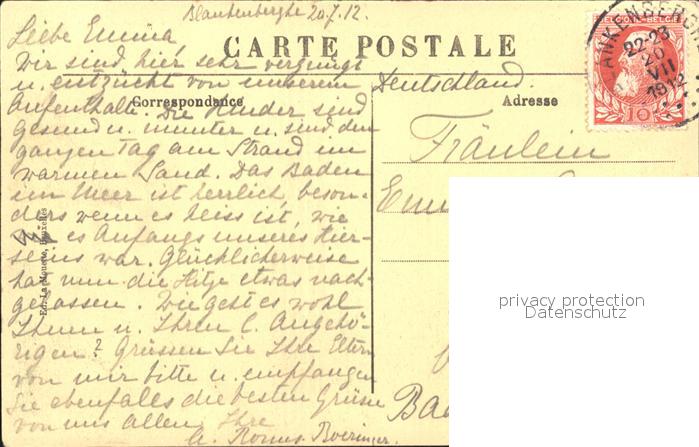 Blankenberghe 20.7.12.
CARTE POSTALE
Correspondance
Adresse
Liebe Emma,
Wir sind hier sehr vergnügt
u. entzückt von unserem
Aufenthalt. Die Kinder sind
gesund u. munter u. sind den
ganzen Tag am Strand im
warmen Sand. Das Baden
im Meer ist herrlich, beson-
ders wenn es heiss ist, wie
es Anfangs unseres Hier-
seins war. Glücklicherweise
hat nun die Hitze etwas nach-
gelassen. Wie geht es wohl
Ihnen u. Ihren l. Angehö-
rigen? Grüssen Sie Ihre Eltern
von mir bitte u. empfangen
Sie ebenfalls die besten Grüsse
von uns allen. Ihre
Boeringer.
Deutschland.
Fräulein
Em
Ba
BELGIQUE-BELGIË
10
BLANKENBERGHE
22-23
20
VII
1912
privacy protection
Datenschutz